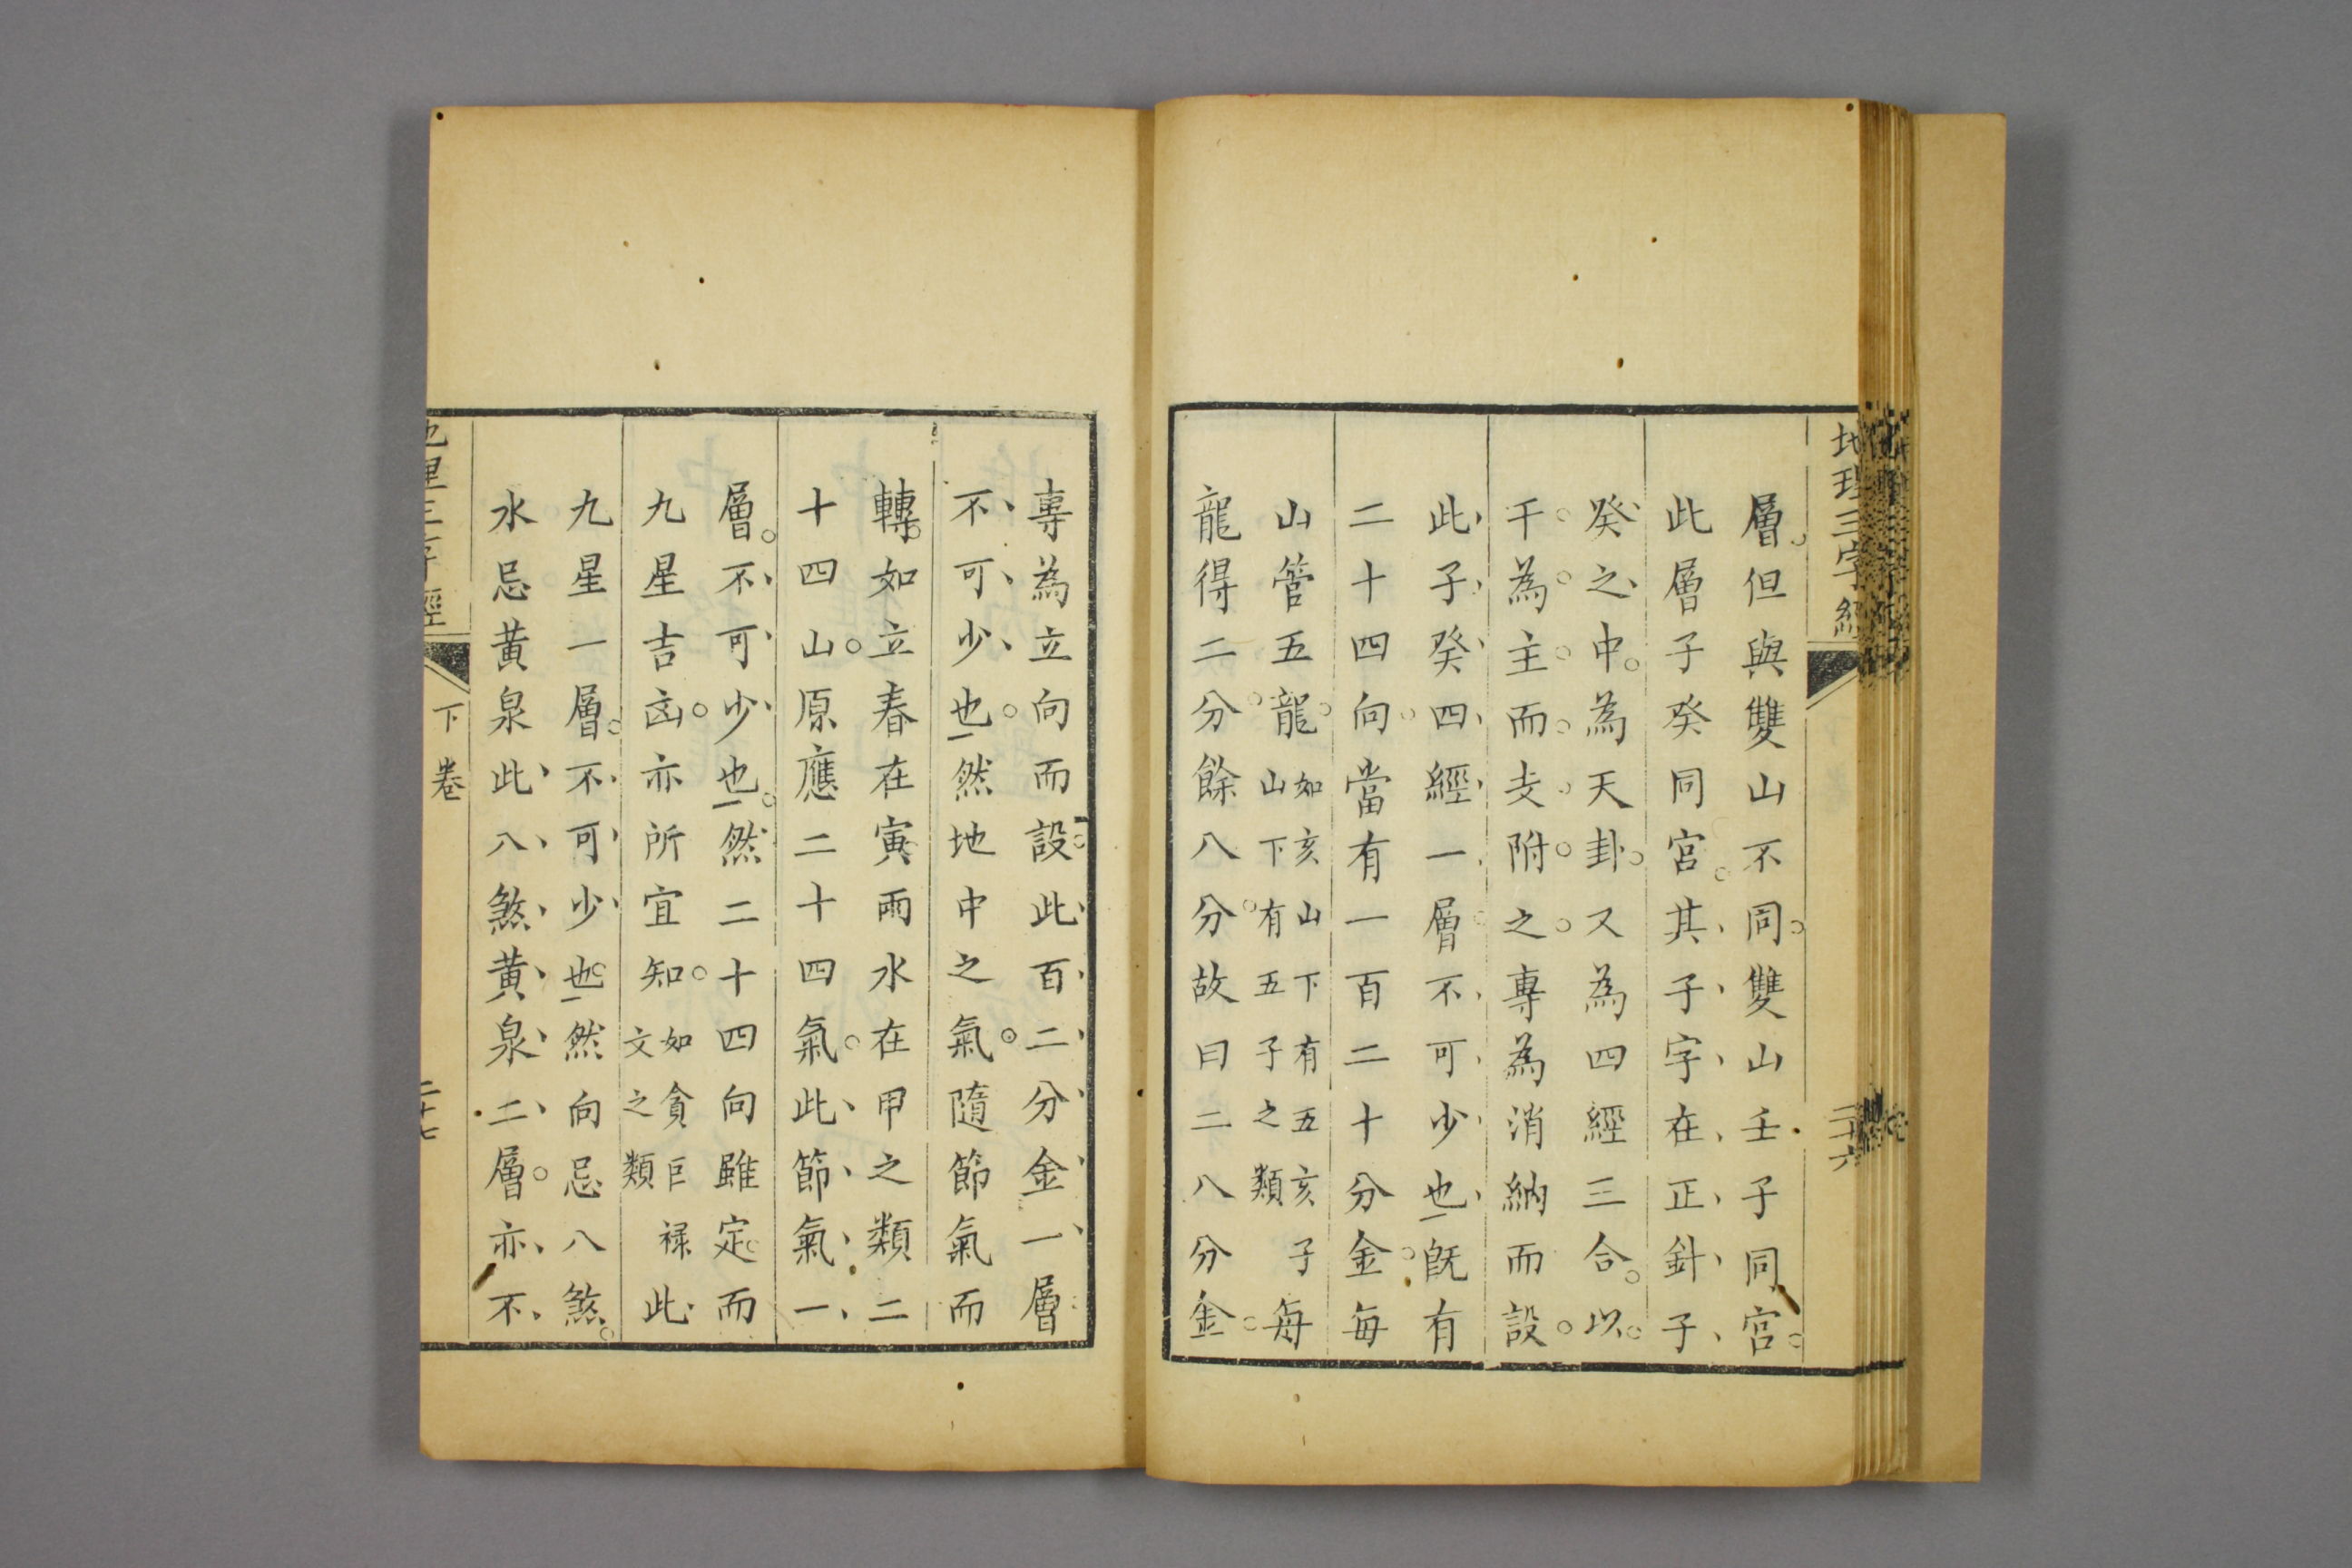 地理三字經
二十六
層但與雙山不同雙山壬子同宮
此層子癸同宮其子字在正針子
癸之中為天卦又為四經三合以
干為主而支附之專為消納而設
此子癸四經一層不可少也既有
二十四向當有一百二十分金每
山管五龍如亥山下有五亥子山下有五子之類每
龍得二分餘八分故曰二八分金
專為立向而設此百二分金一層
不可少也然地中之氣隨節氣而
轉如立春在寅雨水在甲之類二
十四山原應二十四氣此節氣一
層不可少也然二十四向雖定而
九星吉凶亦所宜知如貪巨祿文之類此
九星一層不可少也然向忌八煞
水忌黃泉此八煞黃泉二層亦不
地理三字經
下卷
二十七